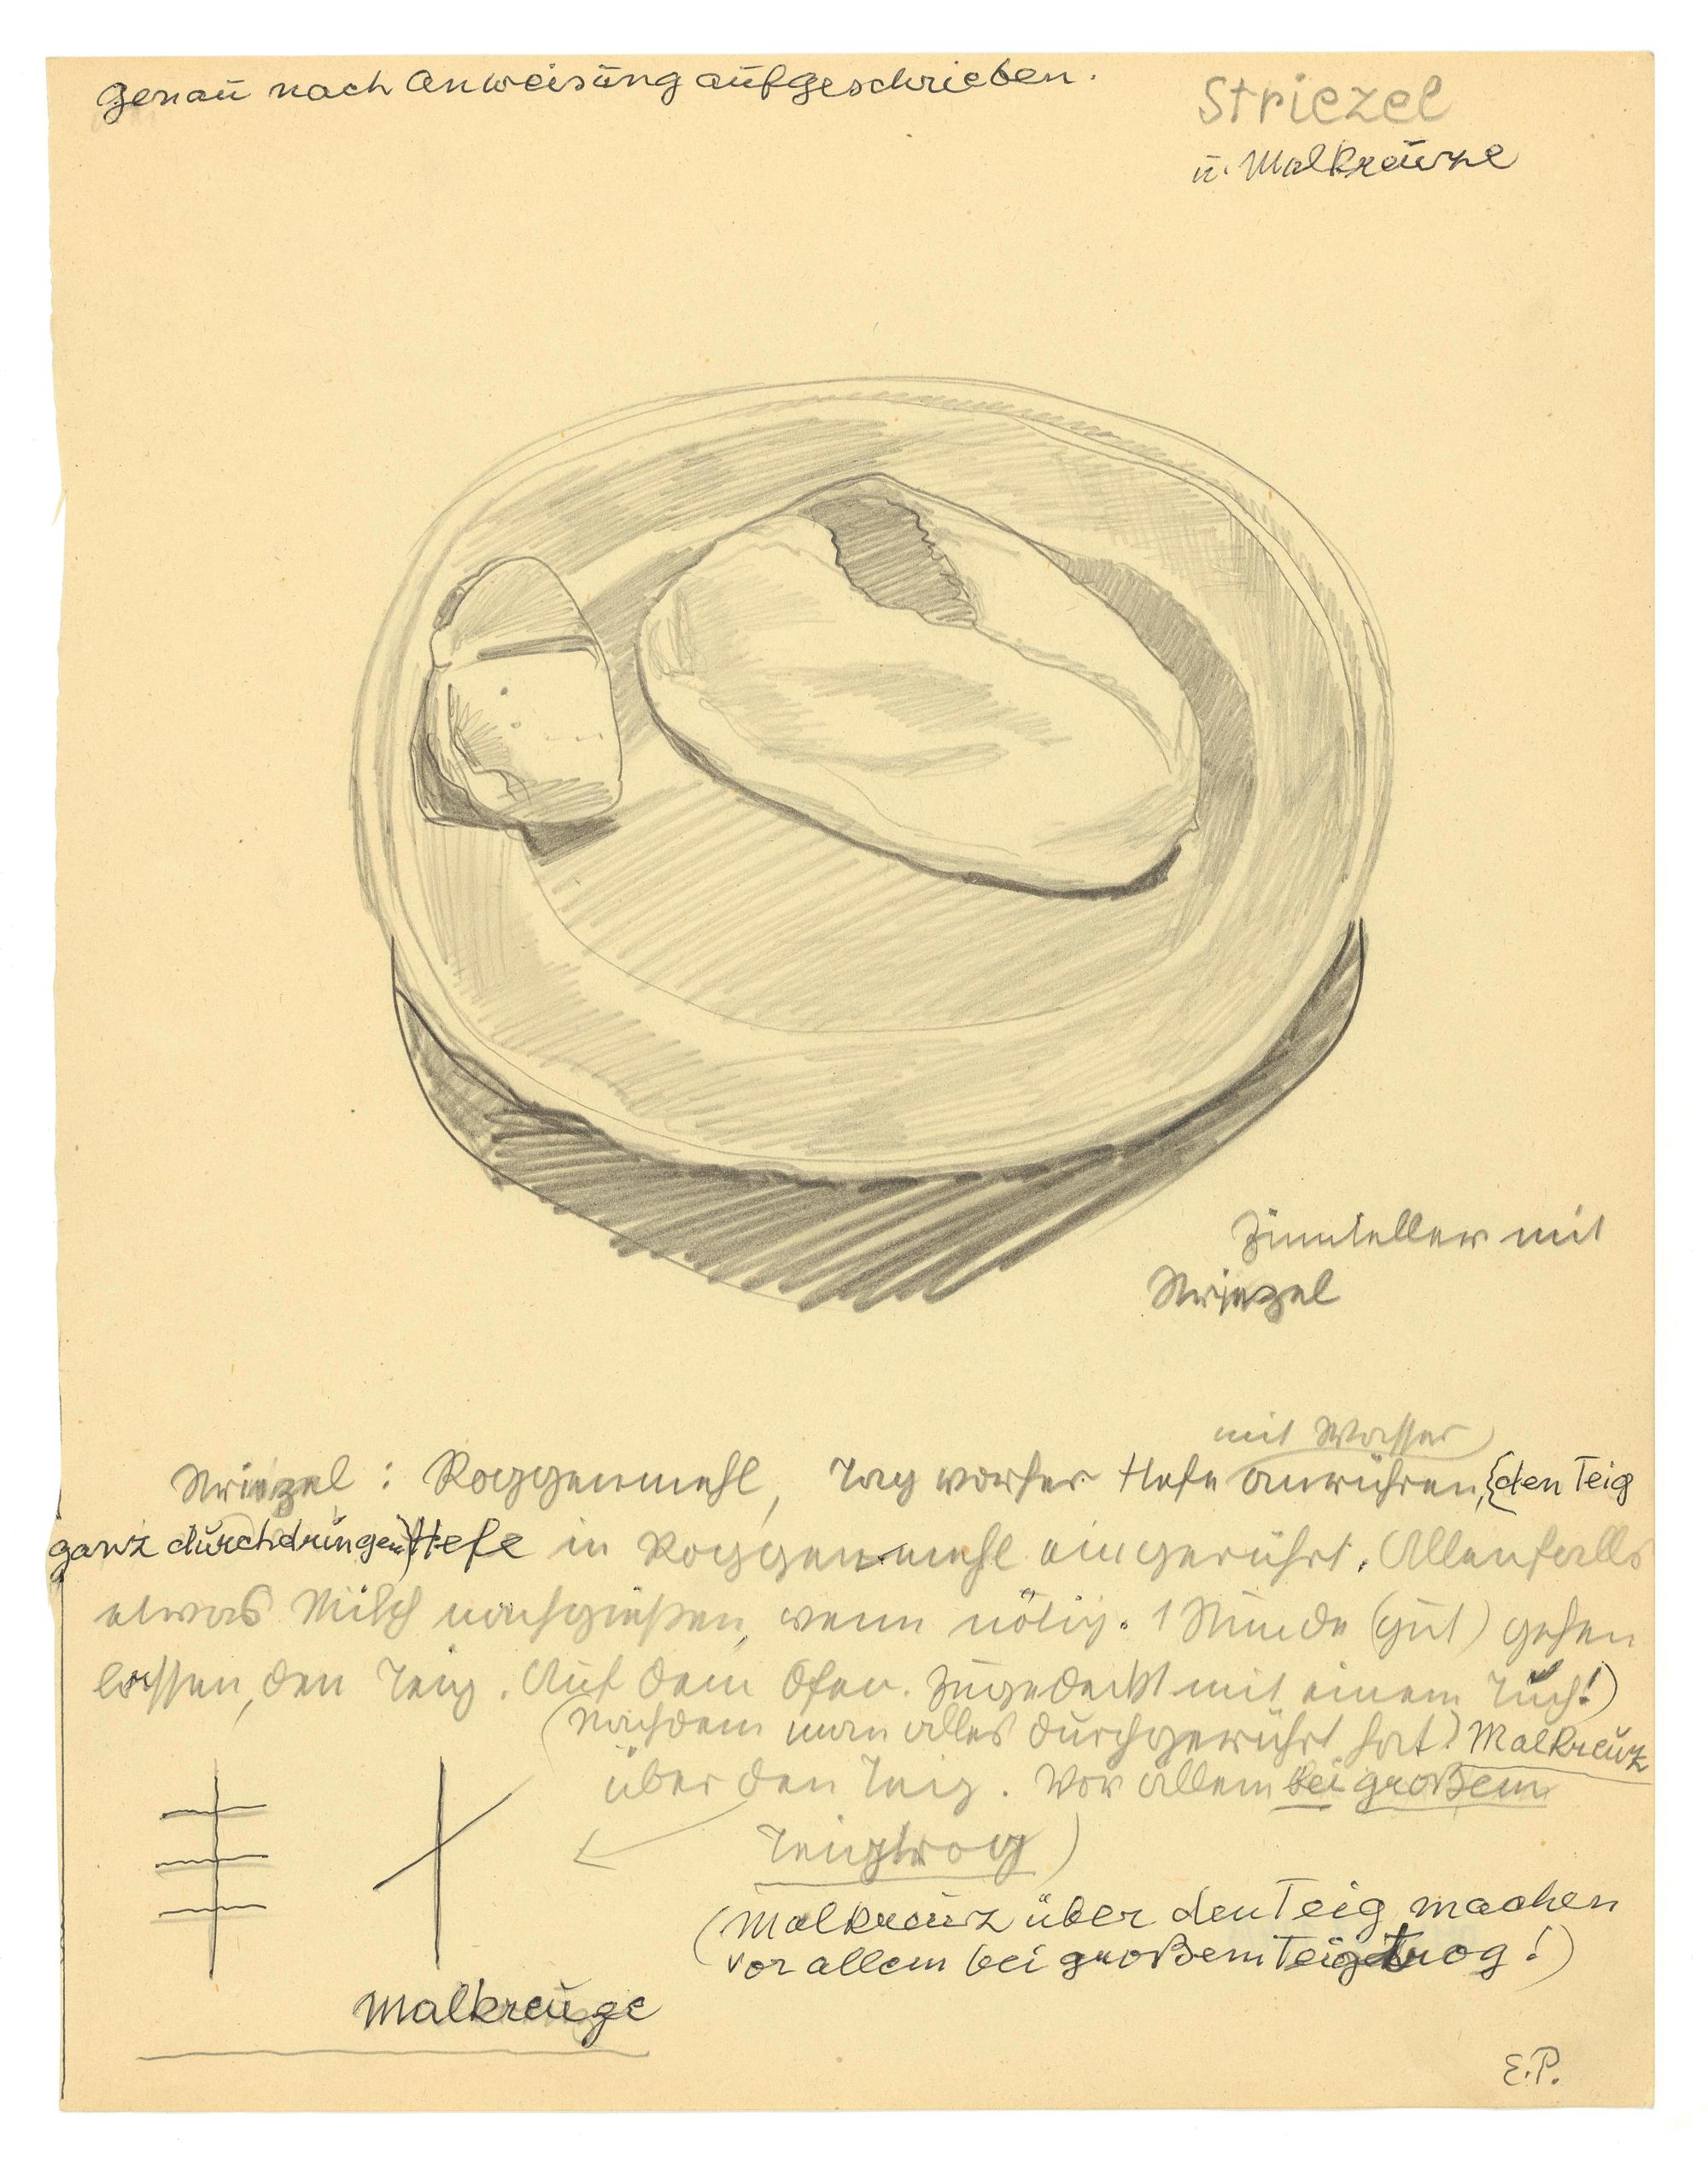 Genau nach Anweisung aufgeschrieben.
Striezel
u. Malkreuze
Zinnteller mit
Striezel
mit Wasser
Striezel : Roggenmehl, Tag vorher Hefe anrühren, {den Teig
ganz durchdringen) Hefe in Roggenmehl eingerührt. Allenfalls
etwas Milch nachgießen, wenn nötig. 1 Stunde (gut) gehen
lassen, den Teig. Auf dem Ofen. Zugedeckt mit einem Tuch!)
(Nachdem man alles durchgerührt hat) Malkreuz
über den Teig. Vor allem bei großem
Teigtrog)
(Malkreuz über den Teig machen
vor allem bei großem Teigtrog!)
Malkreuze
E.P.